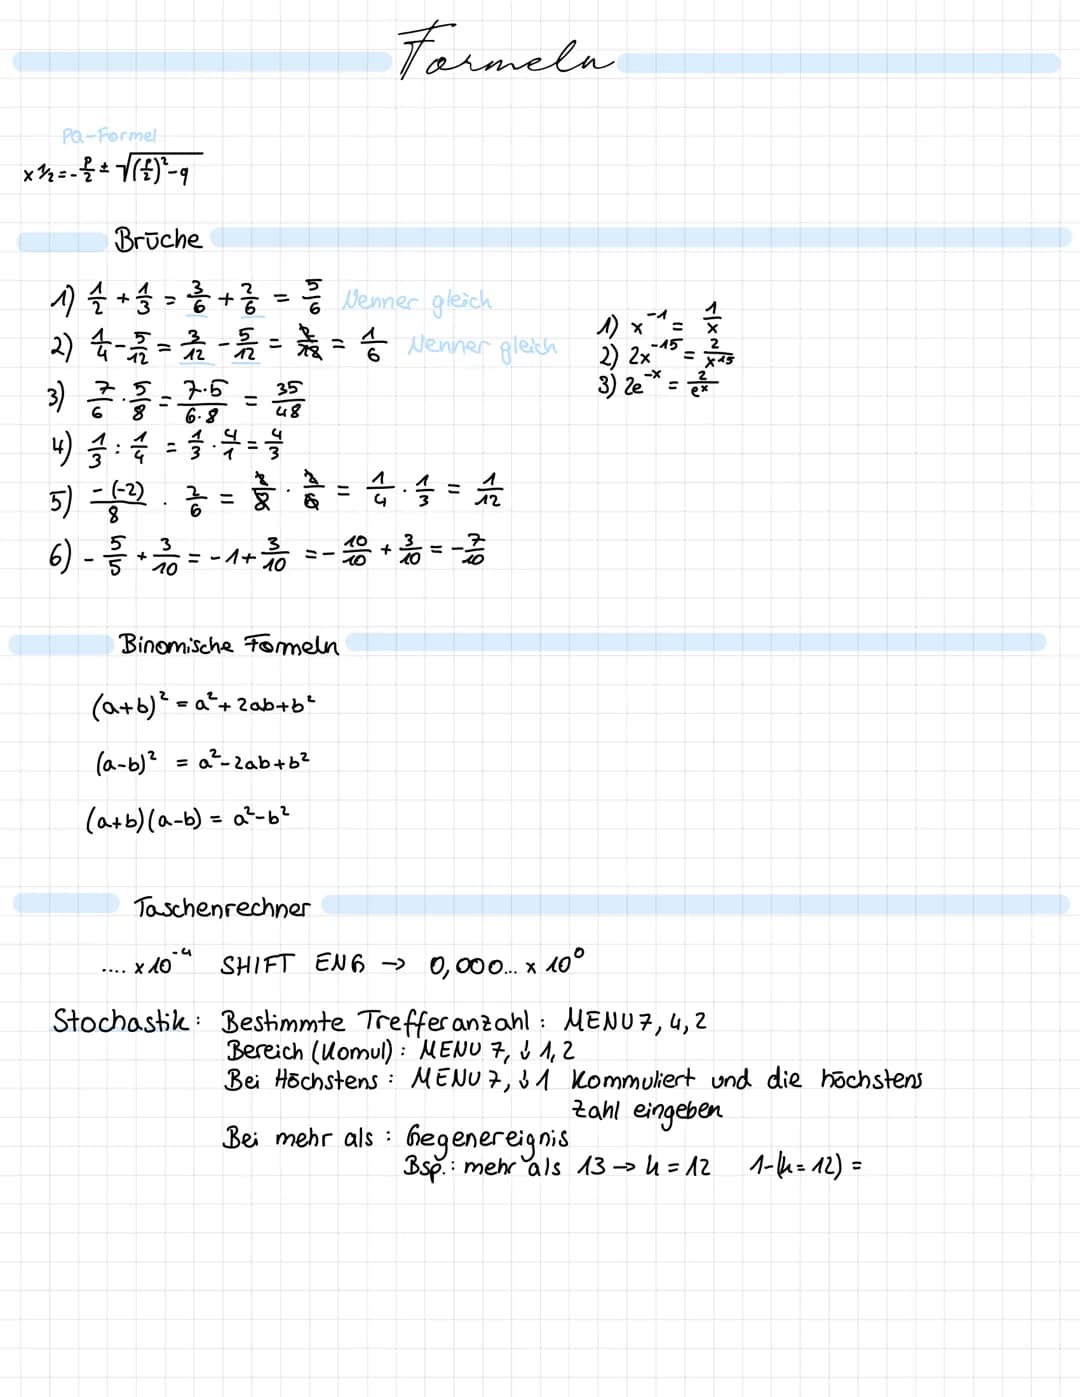 Formeln
Pq-Formel
x 1/2 = - p/2 ± √(p/2)² - q
Brüche
1) 1/2 + 1/3 = 3/6 + 2/6 = 5/6 Nenner gleich
2) 1/4 - 5/12 = 3/12 - 5/12 = 2/12 = 1/6 Nenner gleich
3) 7/6 · 5/8 = 7·5/6·8 = 35/48
4) 1/3 : 1/4 = 1/3 · 4/1 = 4/3
5) -(-2)/8 · 2/6 = 2/8 · 2/6 = 1/4 · 1/3 = 1/12
6) - 5/5 + 3/10 = -1 + 3/10 = - 10/10 + 3/10 = - 7/10
1) x⁻¹ = 1/x
2) 2x⁻¹⁵ = 2/x¹⁵
3) 2e⁻ˣ = 2/eˣ
Binomische Formeln
(a+b)² = a² + 2ab + b²
(a-b)² = a² - 2ab + b²
(a+b)(a-b) = a² - b²
Taschenrechner
.... x 10⁻⁴ SHIFT ENG → 0,000... x 10⁰
Stochastik: Bestimmte Trefferanzahl: MENU 7, 4, 2
Bereich (Komul): MENU 7, ↓ 1, 2
Bei Höchstens: MENU 7, ↓ 1 Kommuliert und die höchstens
Zahl eingeben
Bei mehr als: Gegenereignis
Bsp.: mehr als 13 → k = 12 1-(k = 12) =